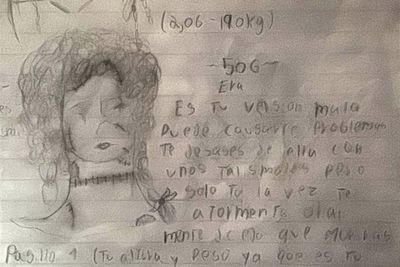 (2,06 - 190kg)
~506~
Era
Es tu version mala
Puede causarte problemas
Te desases de ella con
unos talismanes pero
solo tu la vez te
atormenta
mente
que
Pasillo 1 (Tu altura y peso ya que es tu